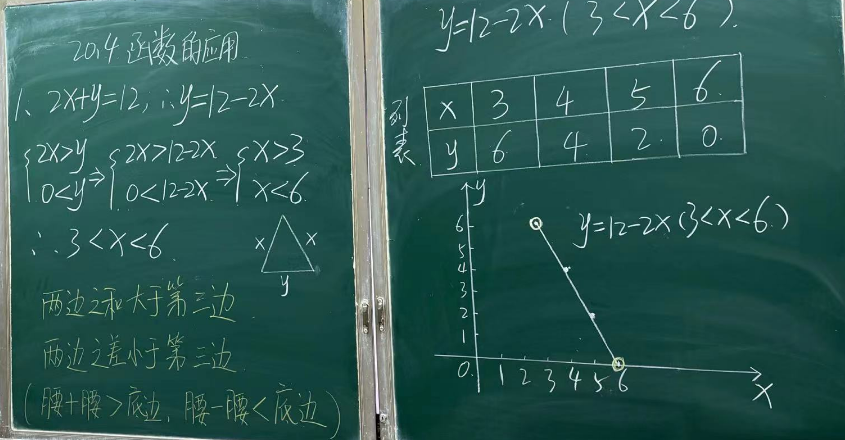 20.4 函数的应用
1、2x+y=12, ∴y=12-2x
{2x>y ⇒ {2x>12-2x ⇒ {x>3
0<y 0<12-2x x<6
∴3<x<6
x x
y
两边之和大于第三边
两边之差小于第三边
(腰+腰>底边, 腰-腰<底边)
y=12-2x (3<x<6).
列表
x 3 4 5 6
y 6 4 2 0
y
6
5
4
3
2
1
y=12-2x(3<x<6)
0 1 2 3 4 5 6
x